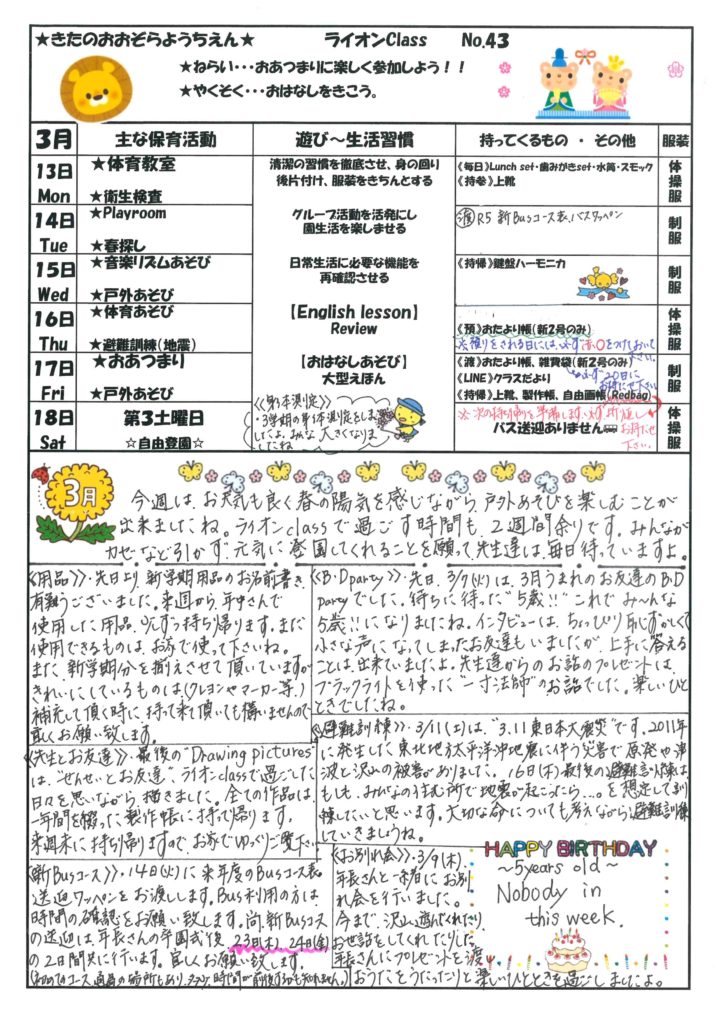 ★きたのおおぞらようちえん★ ライオンClass No.43
★ねらい・・・おあつまりに楽しく参加しよう！！
★やくそく・・・おはなしをきこう。
3月 主な保育活動 遊び～生活習慣 持ってくるもの ・ その他 服装
13日 Mon ★体育教室 ★衛生検査
清潔の習慣を徹底させ、身の回り
後片付け、服装をきちんとする
《毎日》Lunch set・歯みがきset・水筒・スモック
《持参》上靴
体操服
14日 Tue ★Playroom ★春探し
グループ活動を活発にし
園生活を楽しませる
渡 R5 新Busコース表、バスワッペン
制服
15日 Wed ★音楽リズムあそび ★戸外あそび
日常生活に必要な機能を
再確認させる
《持帰》鍵盤ハーモニカ
制服
16日 Thu ★体育あそび ★避難訓練（地震）
【English lesson】
Review
《預》おたより帳（新2号のみ）
体操服
17日 Fri ★おあつまり ★戸外あそび
【おはなしあそび】
大型えほん
《渡》おたより帳、雑費袋（新2号のみ）
《LINE》クラスだより
《持帰》上靴、製作帳、自由画帳（Redbag）
制服
18日 Sat 第3土曜日 ☆自由登園☆
《身体測定》
・3学期の身体測定をしま
したよ。みんな大きくなりま
したね
バス送迎ありません
体操服
3月
今週は、お天気も良く春の陽気を感じながら、戸外あそびを楽しむことが
出来ましたね。ライオンclassで過ごす時間も、2週間余りです。みんなが
カゼなど引かず、元気に登園してくれることを願って、先生達は、毎日待っていますよ。
《用品》・先日より、新学期用品のお名前書き、
有難うございました。来週から、年中さんで
使用した用品、少しずつ持ち帰ります。まだ
使用できるものは、お家で使って下さいね。
また、新学期分を揃えさせて頂いていますが、
きれいにしているものは（クレヨンやマーカー等）
補充して頂く時に、持って来て頂いても構いませんので
宜しくお願い致します。
《B・Dparty》・先日、3/7(火)は、3月うまれのお友達のB・D
partyでした。待ちに待った"5歳!!"これでみ～んな
5歳!!になりましたね。インタビューは、ちょっぴり恥ずかしくて
小さな声になってしまったお友達もいましたが、上手に答える
ことは、出来ていましたよ。先生達からのお話のプレゼントは、
ブラックライトを使った"一寸法師"のお話でした。楽しいひと
ときでしたね。
《先生とお友達》・最後の"Drawing pictures"
は、"せんせいとお友達"。ライオンclassで過ごした
日々を思いながら、描きました。全ての作品は、
一年間を綴った製作帳に持って帰ります。
来週末に持ち帰りますので、お家でゆっくりご覧下さい
《避難訓練》・3/11(土)は、"3.11東日本大震災"です。2011年
に発生した東北地方太平洋沖地震に伴う災害で原発や津
波と沢山の被害がありました。16日(木)最後の避難訓練は、
もしも、みんなの住む所で地震が起こったら…。を想定して訓
練したいと思います。大切な命についても考えながら避難訓練
していきましょうね。
《新Busコース》・14日(火)に来年度のBusコース表、
送迎ワッペンをお渡しします。Bus利用の方は、
時間の確認をお願い致します。尚、新Busコース
の送迎は、年長さんの卒園式後、23日(木)、24日(金)
の2日間共に行います。宜しくお願い致します。
《お別れ会》・3/9(木)、
年長さんと一緒にお別
れ会を行いました。
今まで、沢山遊んでくれたり、
お世話をしてくれたりした
年長さんにプレゼントを渡し
おうたをうたったりと楽しいひとときを過ごしましたよ。
HAPPY BIRTHDAY
～5years old～
Nobody in
this week.